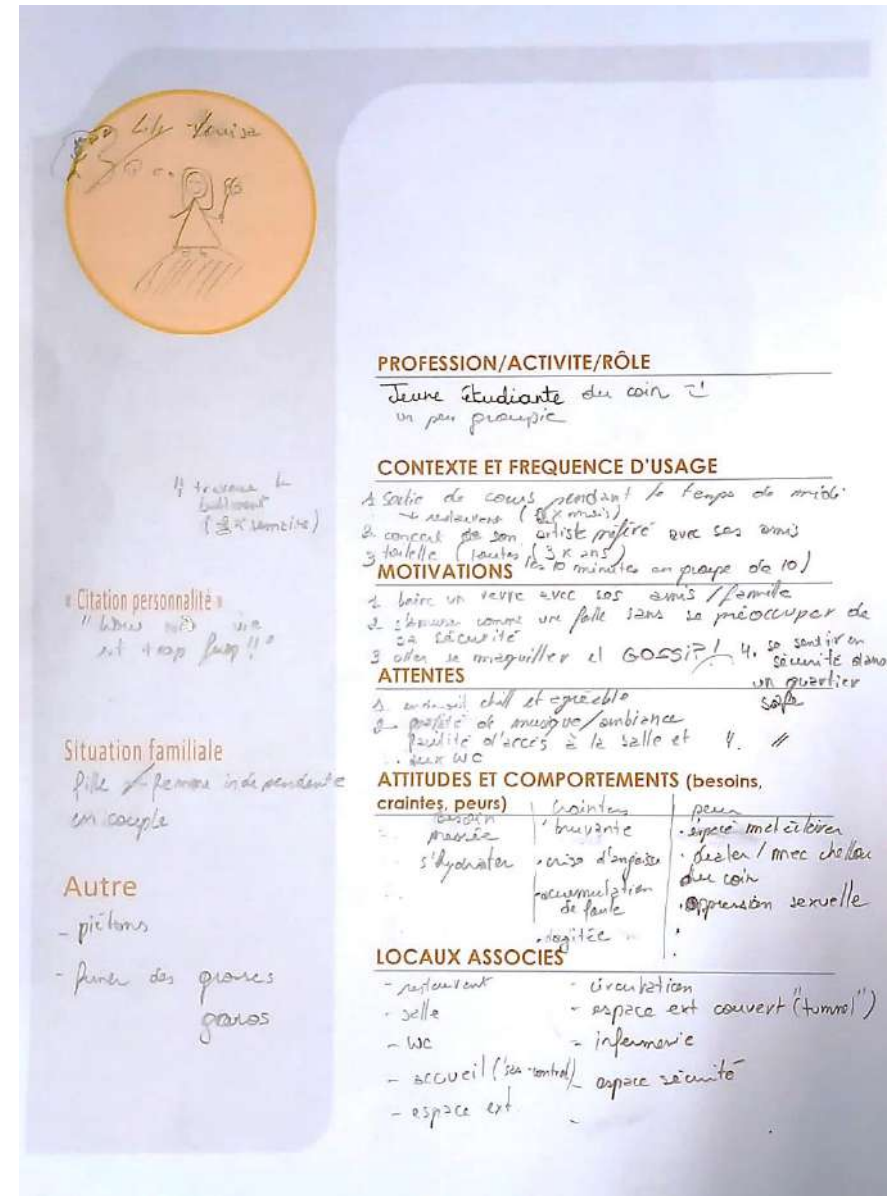 Lily Louisa
PROFESSION/ACTIVITE/RÔLE
Jeune étudiante du coin
un peu groupie
CONTEXTE ET FREQUENCE D'USAGE
1 Sortie de cours pendant le temps de midi
→ restaurant ( x mois)
2. concert de son artiste préféré avec ses amis
(3 x ans)
3 toilette (toutes les 10 minutes en groupe de 10)
4 traverse le
bâtiment
( x semaine)
MOTIVATIONS
1 boire un verre avec ses amis / famille
2 s'amuser comme une folle sans se préoccuper de
sa sécurité
3 aller se maquiller et GOSSIP!
4. se sentir en
sécurité dans
un quartier
safe
« Citation personnalité »
" vie
est trop !!"
ATTENTES
1. endroit chill et agréable
2 profité de musique/ambiance
facilité d'accès à la salle et
aux WC
4. //
Situation familiale
fille femme indépendante
en couple
ATTITUDES ET COMPORTEMENTS (besoins,
craintes, peurs)
besoin
s'hydrater
craintes
bruyante
crise d'angoisse
accumulation
de foule
agitée
peur
. espace mal éclairer
. dealer / mec chelou
du coin
. oppression sexuelle
Autre
- piétons
- fumer des grosses
garos
LOCAUX ASSOCIES
- restaurant
- salle
- WC
- accueil
- espace ext
- circulation
- espace ext couvert ("tunnel")
- infermerie
- espace sécurité